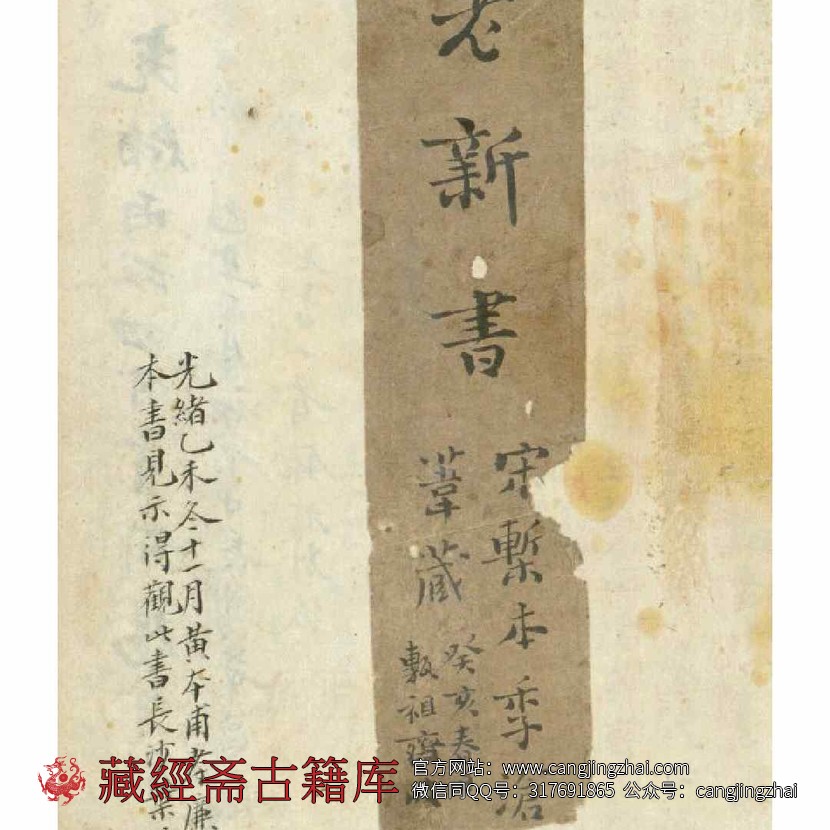 老新書
宋槧本季
葦藏
癸亥春
祖
光緒乙未冬十一月黃本甫孝廉
本書見示得觀此書長沙葉
藏經斋古籍库
官方网站：www.cangjingzhai.com
微信同QQ号：317691865 公众号：cangjingzhai